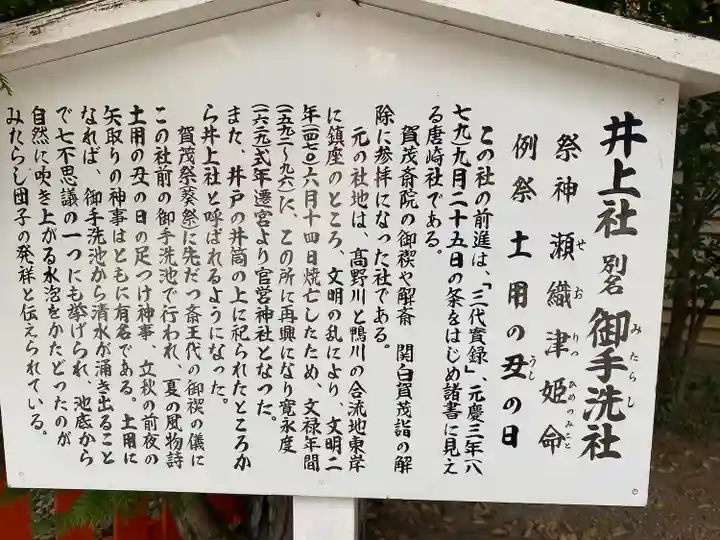 井上社 別名 御手洗社
みたらし
祭神 瀬織津姫命
せおりつひめのみこと
例祭 土用の丑の日
うし
この社の前進は、「三代實録」、元慶三年八
七九)九月二十五日の条をはじめ諸書に見え
る唐崎社である。
賀茂斎院の御禊や解斎 関白賀茂詣の解
除に参拝になった社である。
元の社地は、髙野川と鴨川の合流地東岸
に鎮座のところ、文明の乱により、文明二
年(一四七〇)六月十四日焼亡したため、文禄年間
(一五九二~九六)に、この所に再興になり寛永度
(一六二九)式年遷宮より官営神社となった。
また、井戸の井筒の上に祀られたところか
ら井上社と呼ばれるようになった。
賀茂祭(葵祭)に先だつ斎王代の御禊の儀に
この社前の御手洗池で行われ、夏の風物詩
土用の丑の日の足つけ神事 立秋の前夜の
矢取りの神事はともに有名である。土用に
なれば、御手洗池から清水が涌き出ること
で七不思議の一つにも挙げられ、池底から
自然に吹き上がる水泡をかたどったのが
みたらし団子の発祥と伝えられている。